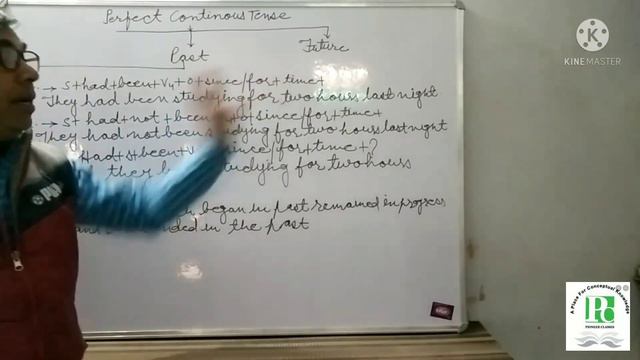 Perfect Continous Tense
Past
Future
→ S+had+been+V4+O+since/for+time+
They had been studying for two hours last night
→ S+had+not+been+ +O+since/for+time+
They had not been studying for two hours last night
Had+S+been+V since/for+time+?
they b studying for two hours
began in past remained in progress
and ended in the past
KINEMASTER
A Place For Conceptual Knowledge
PC
PIONEER CLASSES